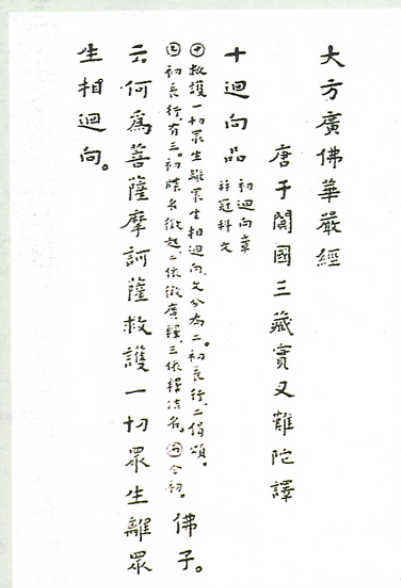 大方廣佛華嚴經
唐于闐國三藏實叉難陀譯
十迴向品 初迴向章 并冠科文
㊥救護一切眾生離眾生相迴向文分為二。初長行。二偈頌。
初長行有三。初牒名徵起。二依徵廣釋。三依釋結名。今初。佛子。
云何為菩薩摩訶薩救護一切眾生離眾
生相迴向。